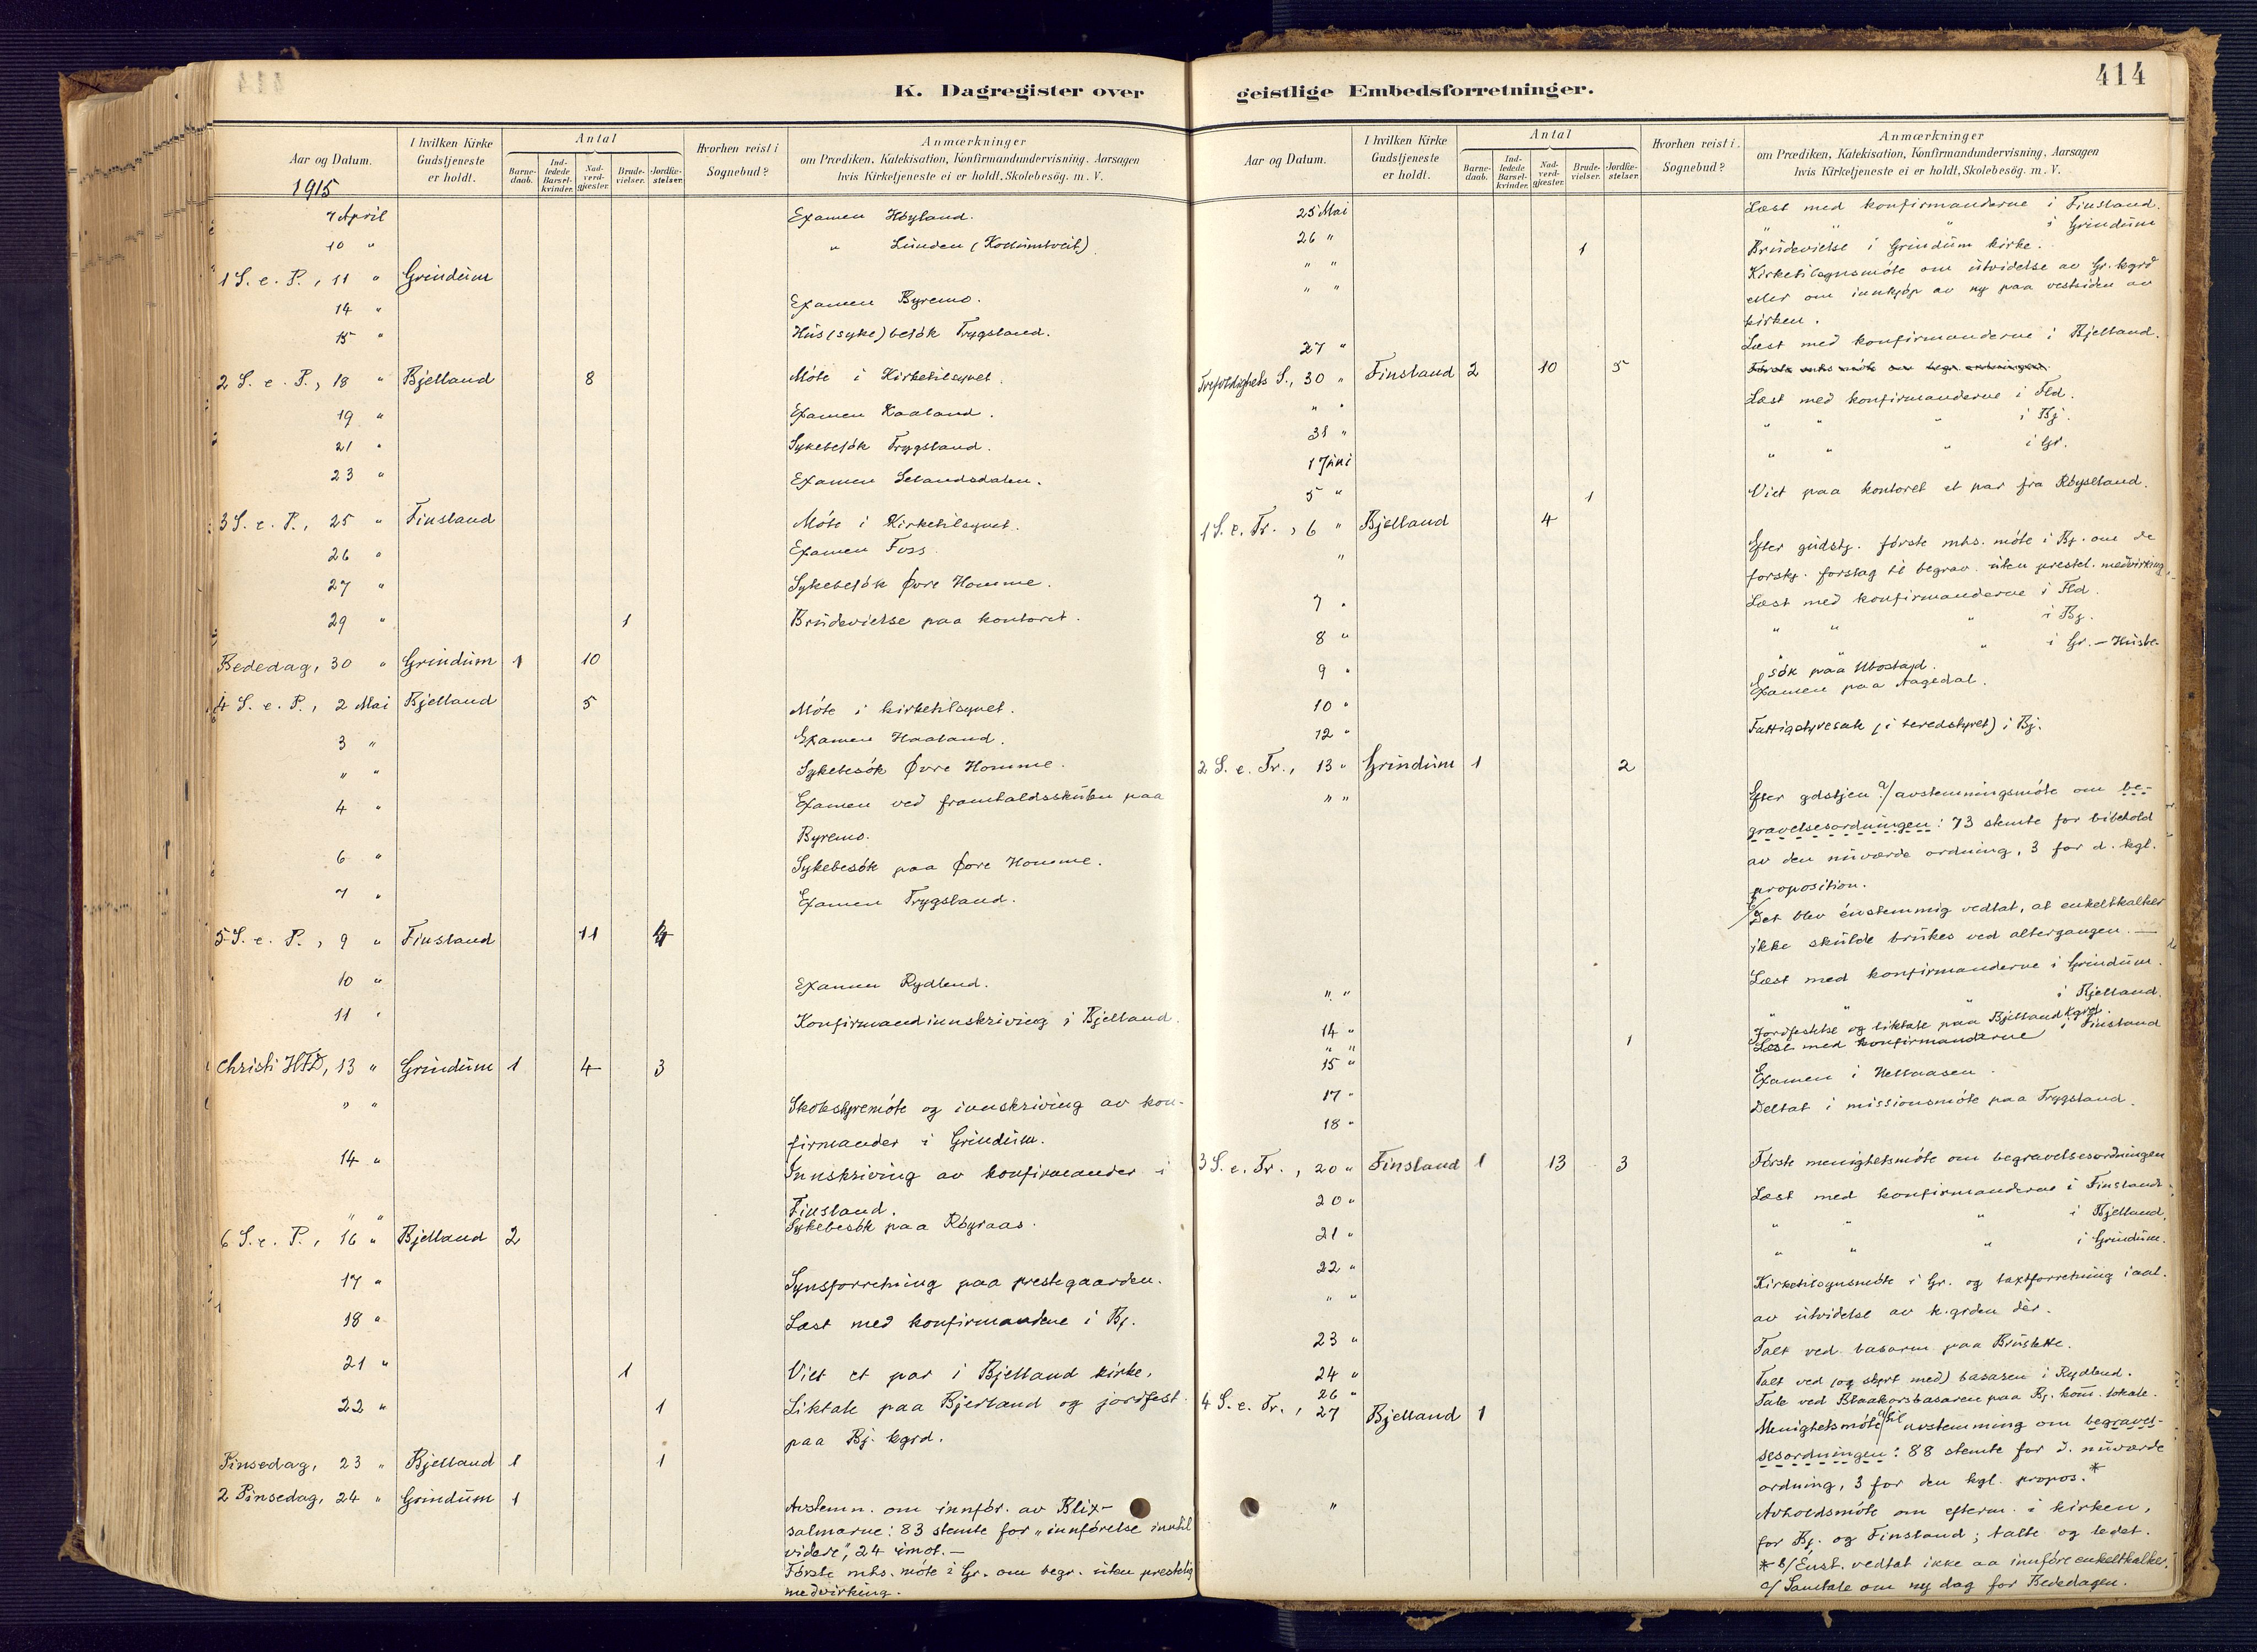 414
K. Dagregister over
Aar og Datum.
I hvilken Kirke Gudstjeneste er holdt.
Antal
Barnedaab. Indledede Barselkvinder. Nadverdgjæster. Brudevielser. Jordfæstelser.
Hvorhen reist i Sognebud?
Anmærkninger
om Prædiken, Katekisation, Konfirmandundervisning, Aarsagen
hvis Kirketjeneste ei er holdt, Skolebesög. m. V.
1915
7 April Examen Høyland.
10 " " Lunden (Kollumtveit)
1 S. e. P., 11 " Grindum
14 " Examen Byremo.
15 " Hus (syke) besøk Trygsland.
2 S. e. P., 18 " Bjelland 8 Møte i Kirketilsynet.
19 " Examen Kaaland.
21 " Sykebesøk Trygsland.
23 " Examen Selandsdalen.
3 S. e. P., 25 " Finsland Møte i Kirketilsynet.
26 " Examen Foss.
27 " Sykebesøk Øvre Homme.
29 " 1 Brudevielse paa kontoret.
Bededag, 30 " Grindum 1 10
4 S. e. P., 2 Mai Bjelland 5 Møte i kirketilsynet.
3 " Examen Haaland.
" " Sykebesøk Øvre Homme.
4 " Examen ved framhaldsskulen paa
Byremo.
6 " Sykebesøk paa Øvre Homme.
7 " Examen Trygsland.
5 S. e. P., 9 " Finsland 11 4
10 " Examen Rydlend.
11 " Konfirmandinnskriving i Bjelland.
Christi HFD, 13 " Grindum 1 4 3
" " Skolestyremøte og innskriving av kon-
firmander i Grindum.
14 " Innskriving av konfirmander i
Finsland.
" " Sykebesøk paa Røyraas.
6 S. e. P., 16 " Bjelland 2
17 " Synsforretning paa prestegaarden.
18 " Læst med konfirmandene i Bj.
21 " 1 Viet et par i Bjelland kirke.
22 " 1 Liktale paa Bjelland og jordfest.
paa Bj. kgrd.
Pinsedag, 23 " Bjelland 1 1
2 Pinsedag, 24 " Grindum 1
Avstemn. om innfør. av Blix-
salmarne: 83 stemte for "innførelse inntil
videre", 24 imot. —
Første mhs. møte i Gr. om begr. uten prestelig
medvirking.
geistlige Embedsforretninger.
414
Aar og Datum.
I hvilken Kirke Gudstjeneste er holdt.
Antal
Barnedaab. Indledede Barselkvinder. Nadverdgjæster. Brudevielser. Jordfæstelser.
Hvorhen reist i Sognebud?
Anmærkninger
om Prædiken, Katekisation, Konfirmandundervisning, Aarsagen
hvis Kirketjeneste ei er holdt, Skolebesög. m. V.
25 Mai Læst med konfirmanderne i Finsland.
26 " " " i Grindum
" " 1 Brudevielse i Grindum kirke.
" " Kirketilsynsmøte om utvidelse av Gr. kgrd
eller om innkjøp av ny paa vestsiden av
kirken.
27 " Læst med konfirmanderne i Bjelland.
Trefoldighets S., 30 " Finsland 2 10 5 Første mhs møte om begr. ordningen.
" " Læst med konfirmanderne i Fld.
31 " " " " i Bj.
1 Juni " " " i Gr.
5 " 1 Viet paa kontoret et par fra Røyseland.
1 S. e. Tr., 6 " Bjelland 4
" Efter gudstj. første mhs. møte i Bj. om de
forskj. forslag til begrav. uten prestel. medvirking.
7 " Læst med konfirmanderne i Fld.
8 " " " " i Bj.
9 " " " " i Gr. — Husbe-
søk paa Ubostad.
10 " Examen paa Aagedal.
12 " Fattigstyresak (i heredstyret) i Bj.
2 S. e. Tr., 13 " Grindum 1 2
" " Efter gdstjen a/ avstemningsmøte om be-
gravelsesordningen: 73 stemte for bibehold
av den nuværde ordning, 3 for d. kgl.
proposition.
b/ Det blev enstemmig vedtat, at enkeltkalker
ikke skulde brukes ved altergangen. —
" " Læst med konfirmanderne i Grindum.
14 " " " i Bjelland.
" " 1 Jordfestelse og liktale paa Bjelland kgrd.
15 " Læst med konfirmanderne i Finsland
17 " Examen i Hellaasen.
18 " Deltat i missionsmøte paa Trygsland.
3 S. e. Tr., 20 " Finsland 1 13 3 Første menighetsmøte om begravelsesordningen
20 " Læst med konfirmanderne i Finsland.
21 " " " " i Bjelland.
22 " " " " i Grindum.
" " Kirketilsynsmøte i Gr. og taxtforretning i anl.
av utvidelse av k.grden dér.
23 " Talt ved basaren paa Bruslette.
24 " Talt ved (og styrt med) basaren i Rydlend.
26 " Tale ved Blaakorsbasaren paa Bj. kom. lokale.
4 S. e. Tr., 27 Bjelland 1 Menighetsmøte a/ til avstemming om begravel-
sesordningen: 88 stemte for d. nuværde
ordning, 3 for den kgl. propos. *
" Avholdsmøte om efterm. i kirken,
for Bj. og Finsland; talte og ledet.
* b/ Enst. vedtat ikke aa innføre enkeltkalke.
c/ Samtale om ny dag for Bededagen.